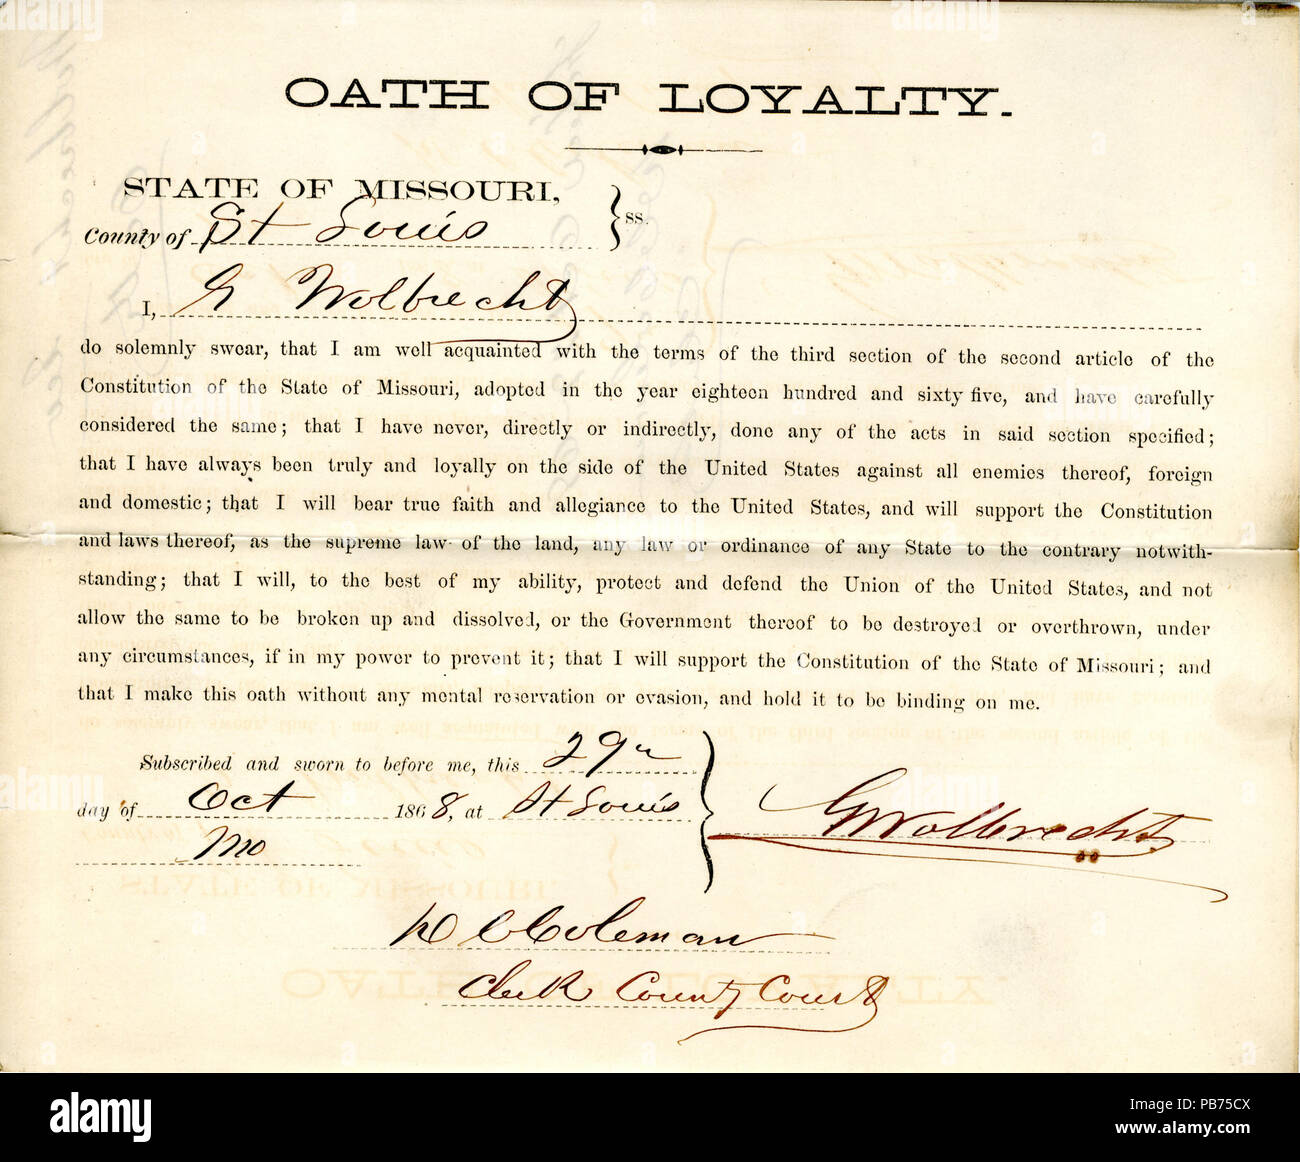 OATH OF LOYALTY.
STATE OF MISSOURI,
County of St Louis } ss.
I, G Wolbrecht
do solemnly swear, that I am well acquainted with the terms of the third section of the second article of the
Constitution of the State of Missouri, adopted in the year eighteen hundred and sixty five, and have carefully
considered the same; that I have never, directly or indirectly, done any of the acts in said section specified;
that I have always been truly and loyally on the side of the United States against all enemies thereof, foreign
and domestic; that I will bear true faith and allegiance to the United States, and will support the Constitution
and laws thereof, as the supreme law of the land, any law or ordinance of any State to the contrary notwith-
standing; that I will, to the best of my ability, protect and defend the Union of the United States, and not
allow the same to be broken up and dissolved, or the Government thereof to be destroyed or overthrown, under
any circumstances, if in my power to prevent it; that I will support the Constitution of the State of Missouri; and
that I make this oath without any mental reservation or evasion, and hold it to be binding on me.
Subscribed and sworn to before me, this 29th
day of Oct 1868, at St Louis
Mo
G Wolbrecht
Coleman
Clerk County Court
alamy
Image ID: PB75CX
www.alamy.com